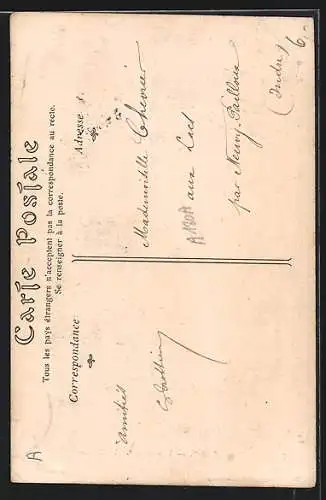 Carte Postale
Tous les pays étrangers n'acceptent pas la correspondance au recto.
Se renseigner à la poste.
Correspondance
Adresse
Amitiés
Mademoiselle Chevrier
aux Lacs
par Neuvy-Pailloux
(Indre)
6.-
A